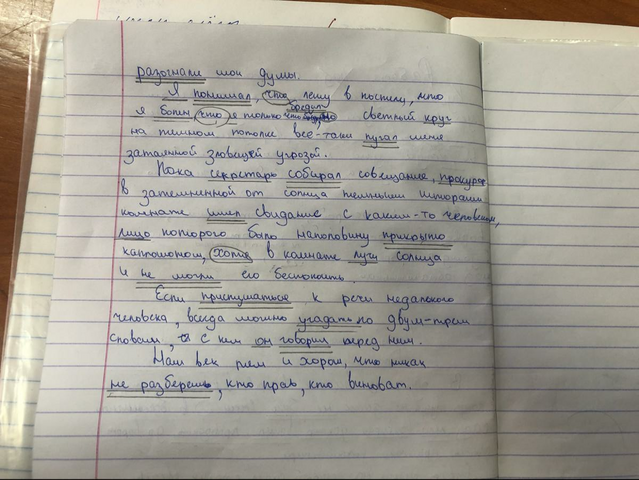 разогнали мои думы.
Я понимал, что лежу в постели, что
я болен, что я только что бредил
светлый круг
на темном потолке все-таки пугал меня
затаянной зловещей угрозой.
Пока секретарь собирал совещание, прокурор
в затемнинной от солнца темными шторами
комнате имел свидание с каким-то человеком,
лицо которого было наполовину прикрыто
капюшоном, хотя в комнате лучи солнца
и не могли его беспокоить.
Если прислушаться к речи недалекого
человека, всегда можно угадать по двум-трем
словам, с кем он говорил перед ним.
Наш век таков и хорош, что никак
не разберешь, кто прав, кто виноват.